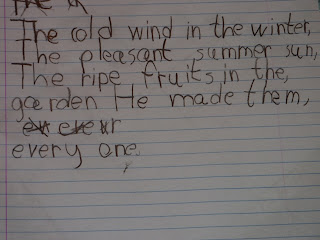 The cold wind in the winter,
The pleasant summer sun,
The ripe fruits in the,
garden He made them,
every one.